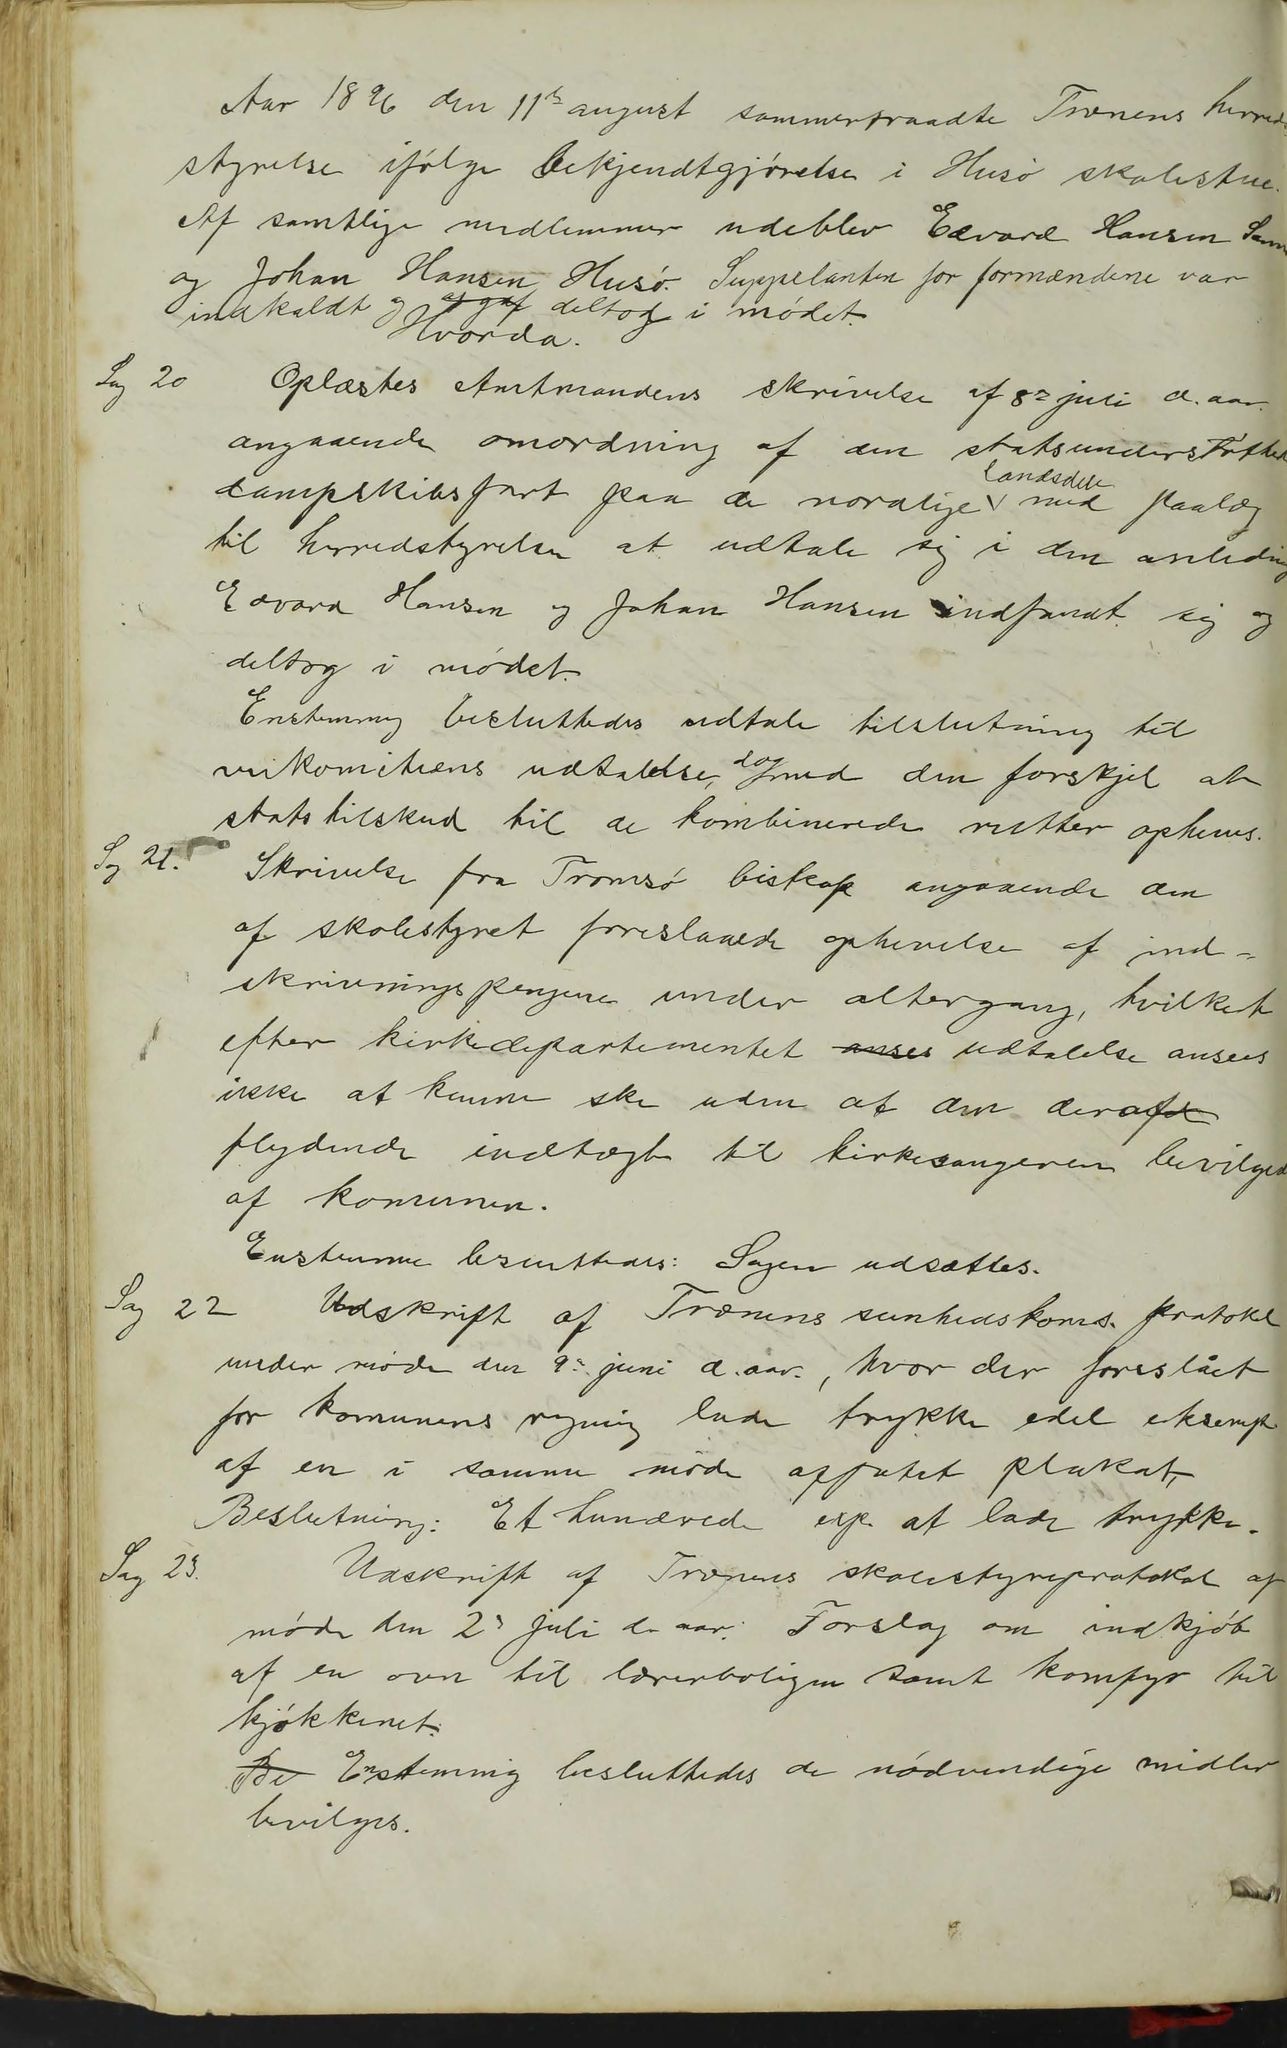 Aar 1896 den 11te august sammentraadte Trænens herreds
styrelse ifølge bekjendtgjørelse i Husø skolestue.
Af samtlige medlemmer udeblev Edvard Hansen Sann
og Johan Hansen Husø. Suppelanten for formændene var
indkaldt og deltog i mødet.
Hvorda.
Sag 20 Oplæstes Amtmandens skrivelse af 8de juli d. aar.
angaaende omordning af den statsunderstøttede
dampskibsfart paa de nordlige landsdele med paalæg
til herredstyrelsen at udtale sig i den anledning
Edvard Hansen og Johan Hansen indfandt sig og
deltog i mødet.
Enstemmig besluttedes udtale tilslutning til
veikomiteens udtalelse, dog med den forskjel at
statstilskud til de kombinerede rutter ophæves.
Sag 21. Skrivelse fra Tromsø biskop angaaende den
af skolestyret foreslaaede ophevelse af ind-
skrivningspengene under altergang, hvilket
efter kirkedepartementet anses udtalelse ansees
ikke at kunne ske uden at den deraf
flydende indtægt til kirkesangeren bevilges
af komunen.
Enstemme besluttedes: Sagen udsættes.
Sag 22 Udskrift af Trænens sunhedskoms. protokol
under møde den 9de juni d. aar., hvor der foreslået
for komunens regning lade trykke edel eksempl
af en i samme møde affatet plakat,
Beslutning: Et hundrede exp. at lade trykke.
Sag 23. Udskrift af Trænens skolestyreprotokol af
møde den 2d juli d. aar. Forslag om indkjøb
af en ovn til lærerboligen samt komfyr til
kjøkkenet.
Be Enstemmig besluttedes de nødvendige midler
bevilges.